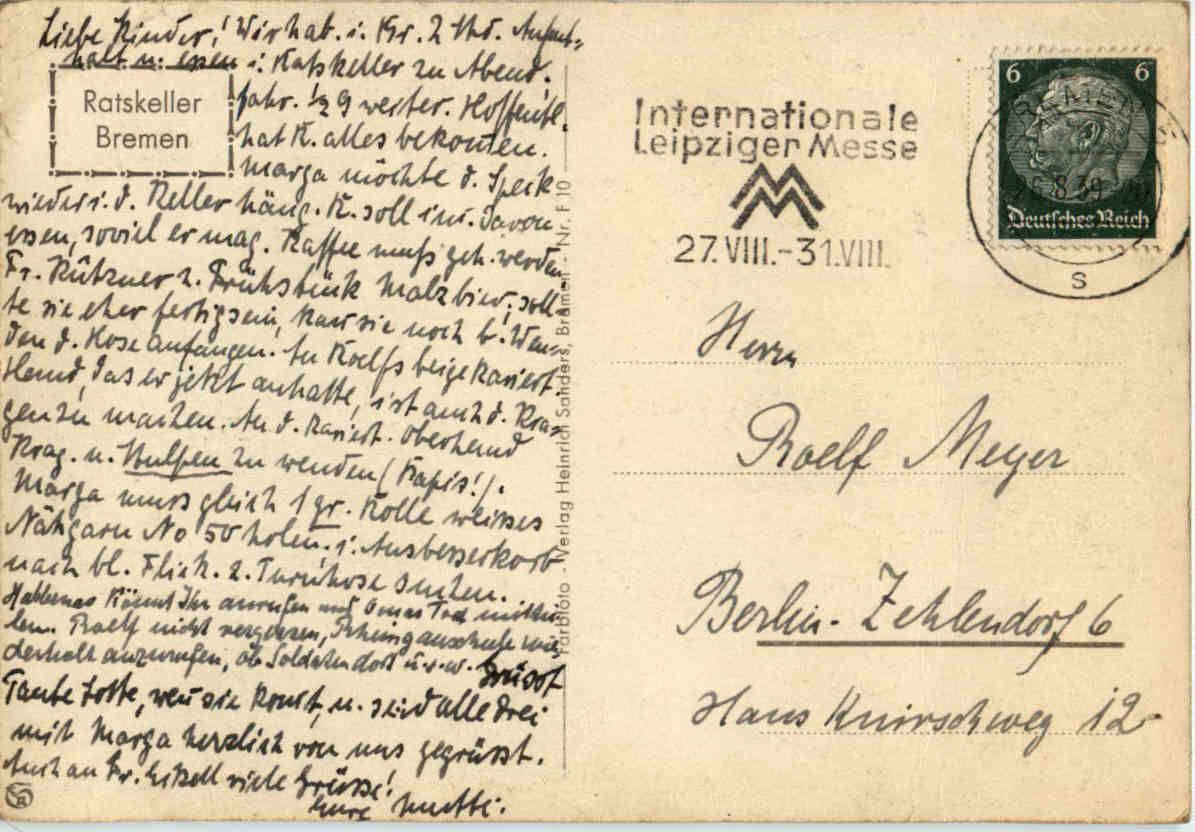 Liebe Kinder! Wir hab. i. Br. 2 Std. Aufent-
halt u. essen i. Ratskeller zu Abend.
fahr. ½ 9 weiter. Hoffentl.
hat K. alles bekomen.
Marga möchte d. Speck
wieder i. d. Keller häng. K. soll ihr. davon
essen, soviel er mag. Kaffee muß geh. werden
Fr. Kützner z. Frühstück Malzbier, soll-
te sie eher fertig sein, kan sie noch b. Wen-
den d. Hose anfangen. An Roelfs beige kariert.
Hemd, das er jetzt anhatte, ist auch d. Kra-
gen zu machen. An d. kariert. Oberhemd
Krag. u. Stulpen zu wenden (Kapis!).
Marga muss gleich 1 gr. Rolle weisses
Nähgarn No 50 holen, i. Ausbesserkorb
nach bl. Flick. z. Turnhose suchen.
Habbenas könnt Ihr anrufen und Omas Tod mittei-
len. Roelf nicht vergessen, wie-
derholt anzurufen, ob Soldat dort u.s.w. Grüsst
Tante Lotte, wen sie komt, u. seid alle drei
mit Marga herzlich von uns gegrüsst.
Auch an Fr. viele Grüsse!
Eure Mutti.
Ratskeller
Bremen
Farbfoto - Verlag Heinrich Sanders, Bremen - Nr. F 10
Internationale
Leipziger Messe
MM
27.VIII.-31.VIII.
6 6
Deutsches Reich
BREMEN
8.39
S
Herrn
Roelf Meyer
Berlin-Zehlendorf 6
Hans Knirschweg 12